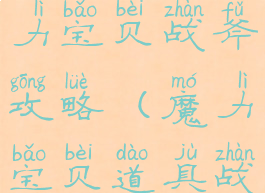 lì bǎo bèi zhàn fǔ
力宝贝战斧
gōng lüè mó lì
攻略（魔力
bǎo bèi dào jù zhàn
宝贝道具战